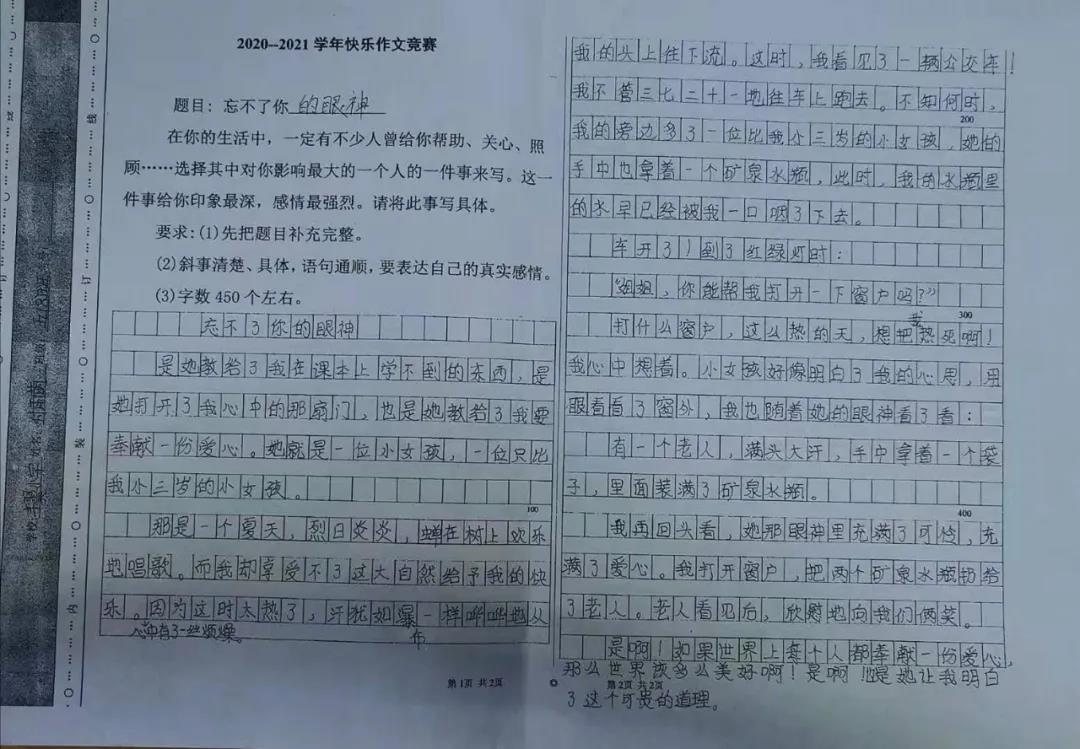 2020--2021 学年快乐作文竞赛
题目：忘不了你的眼神
在你的生活中，一定有不少人曾给你帮助、关心、照
顾……选择其中对你影响最大的一个人的一件事来写。这一
件事给你印象最深，感情最强烈。请将此事写具体。
要求：(1)先把题目补充完整。
(2)斜事清楚、具体，语句通顺，要表达自己的真实感情。
(3)字数 450 个左右。
忘不了你的眼神
是她教给了我在课本上学不到的东西，是
她打开了我心中的那扇门，也是她教给了我要
奉献一份爱心。她就是一位小女孩，一位只比
我小三岁的小女孩。
100
那是一个夏天，烈日炎炎，蝉在树上欢乐
地唱歌。而我却享受不了这大自然给予我的快
乐。因为这时太热了，汗犹如瀑一样哗哗地从
心中有了一丝烦燥。
布
第1页 共2页
我的头上往下流。这时，我看见了一辆公交车！
我不管三七二十一地往车上跑去。不知何时，
200
我的旁边多了一位比我小三岁的小女孩，她的
手中也拿着一个矿泉水瓶，此时，我的水瓶里
的水早已经被我一口咽了下去。
车开了！到了红绿灯时：
“姐姐，你能帮我打开一下窗户吗？”
300
我
打什么窗户，这么热的天，想把热死啊！
我心中想着。小女孩好像明白了我的心思，用
眼看看了窗外，我也随着她的眼神看了看：
有一个老人，满头大汗，手中拿着一个袋
子，里面装满了矿泉水瓶。
400
我再回头看，她那眼神里充满了可怜，充
满了爱心。我打开窗户，把两个矿泉水瓶扔给
了老人。老人看见后，欣慰地向我们俩笑。
是啊！如果世界上每个人都奉献一份爱心，
那么世界该多么美好啊！是啊！是她让我明白
第2页 共2页
了这个可贵的道理。